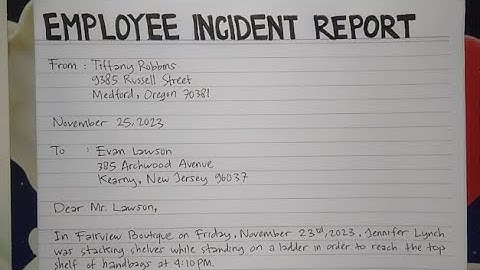 EMPLOYEE INCIDENT REPORT
From : Tiffany Robbins
9385 Russell Street
Medford, Oregon 70381
November 25, 2023
To : Evan Lawson
385 Archwood Avenue
Kearny, New Jersey 96037
Dear Mr. Lawson,
In Fairview Boutique on Friday, November 23rd, 2023, Jennifer Lynch
was stacking shelves while standing on a ladder in order to reach the top
shelf of handbags at 4:10 PM.